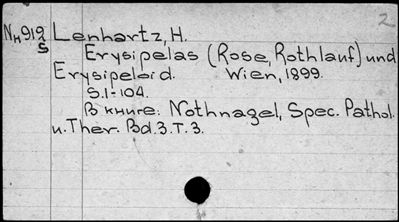 2
Nн919 Lenhartz, H.
S
Erysipelas (Rose, Rothlauf) und
Erysipeloid. Wien, 1899.
S.1-104.
В книге: Nothnagel, Spec. Pathol.
u. Ther. Bd.3. T.3.